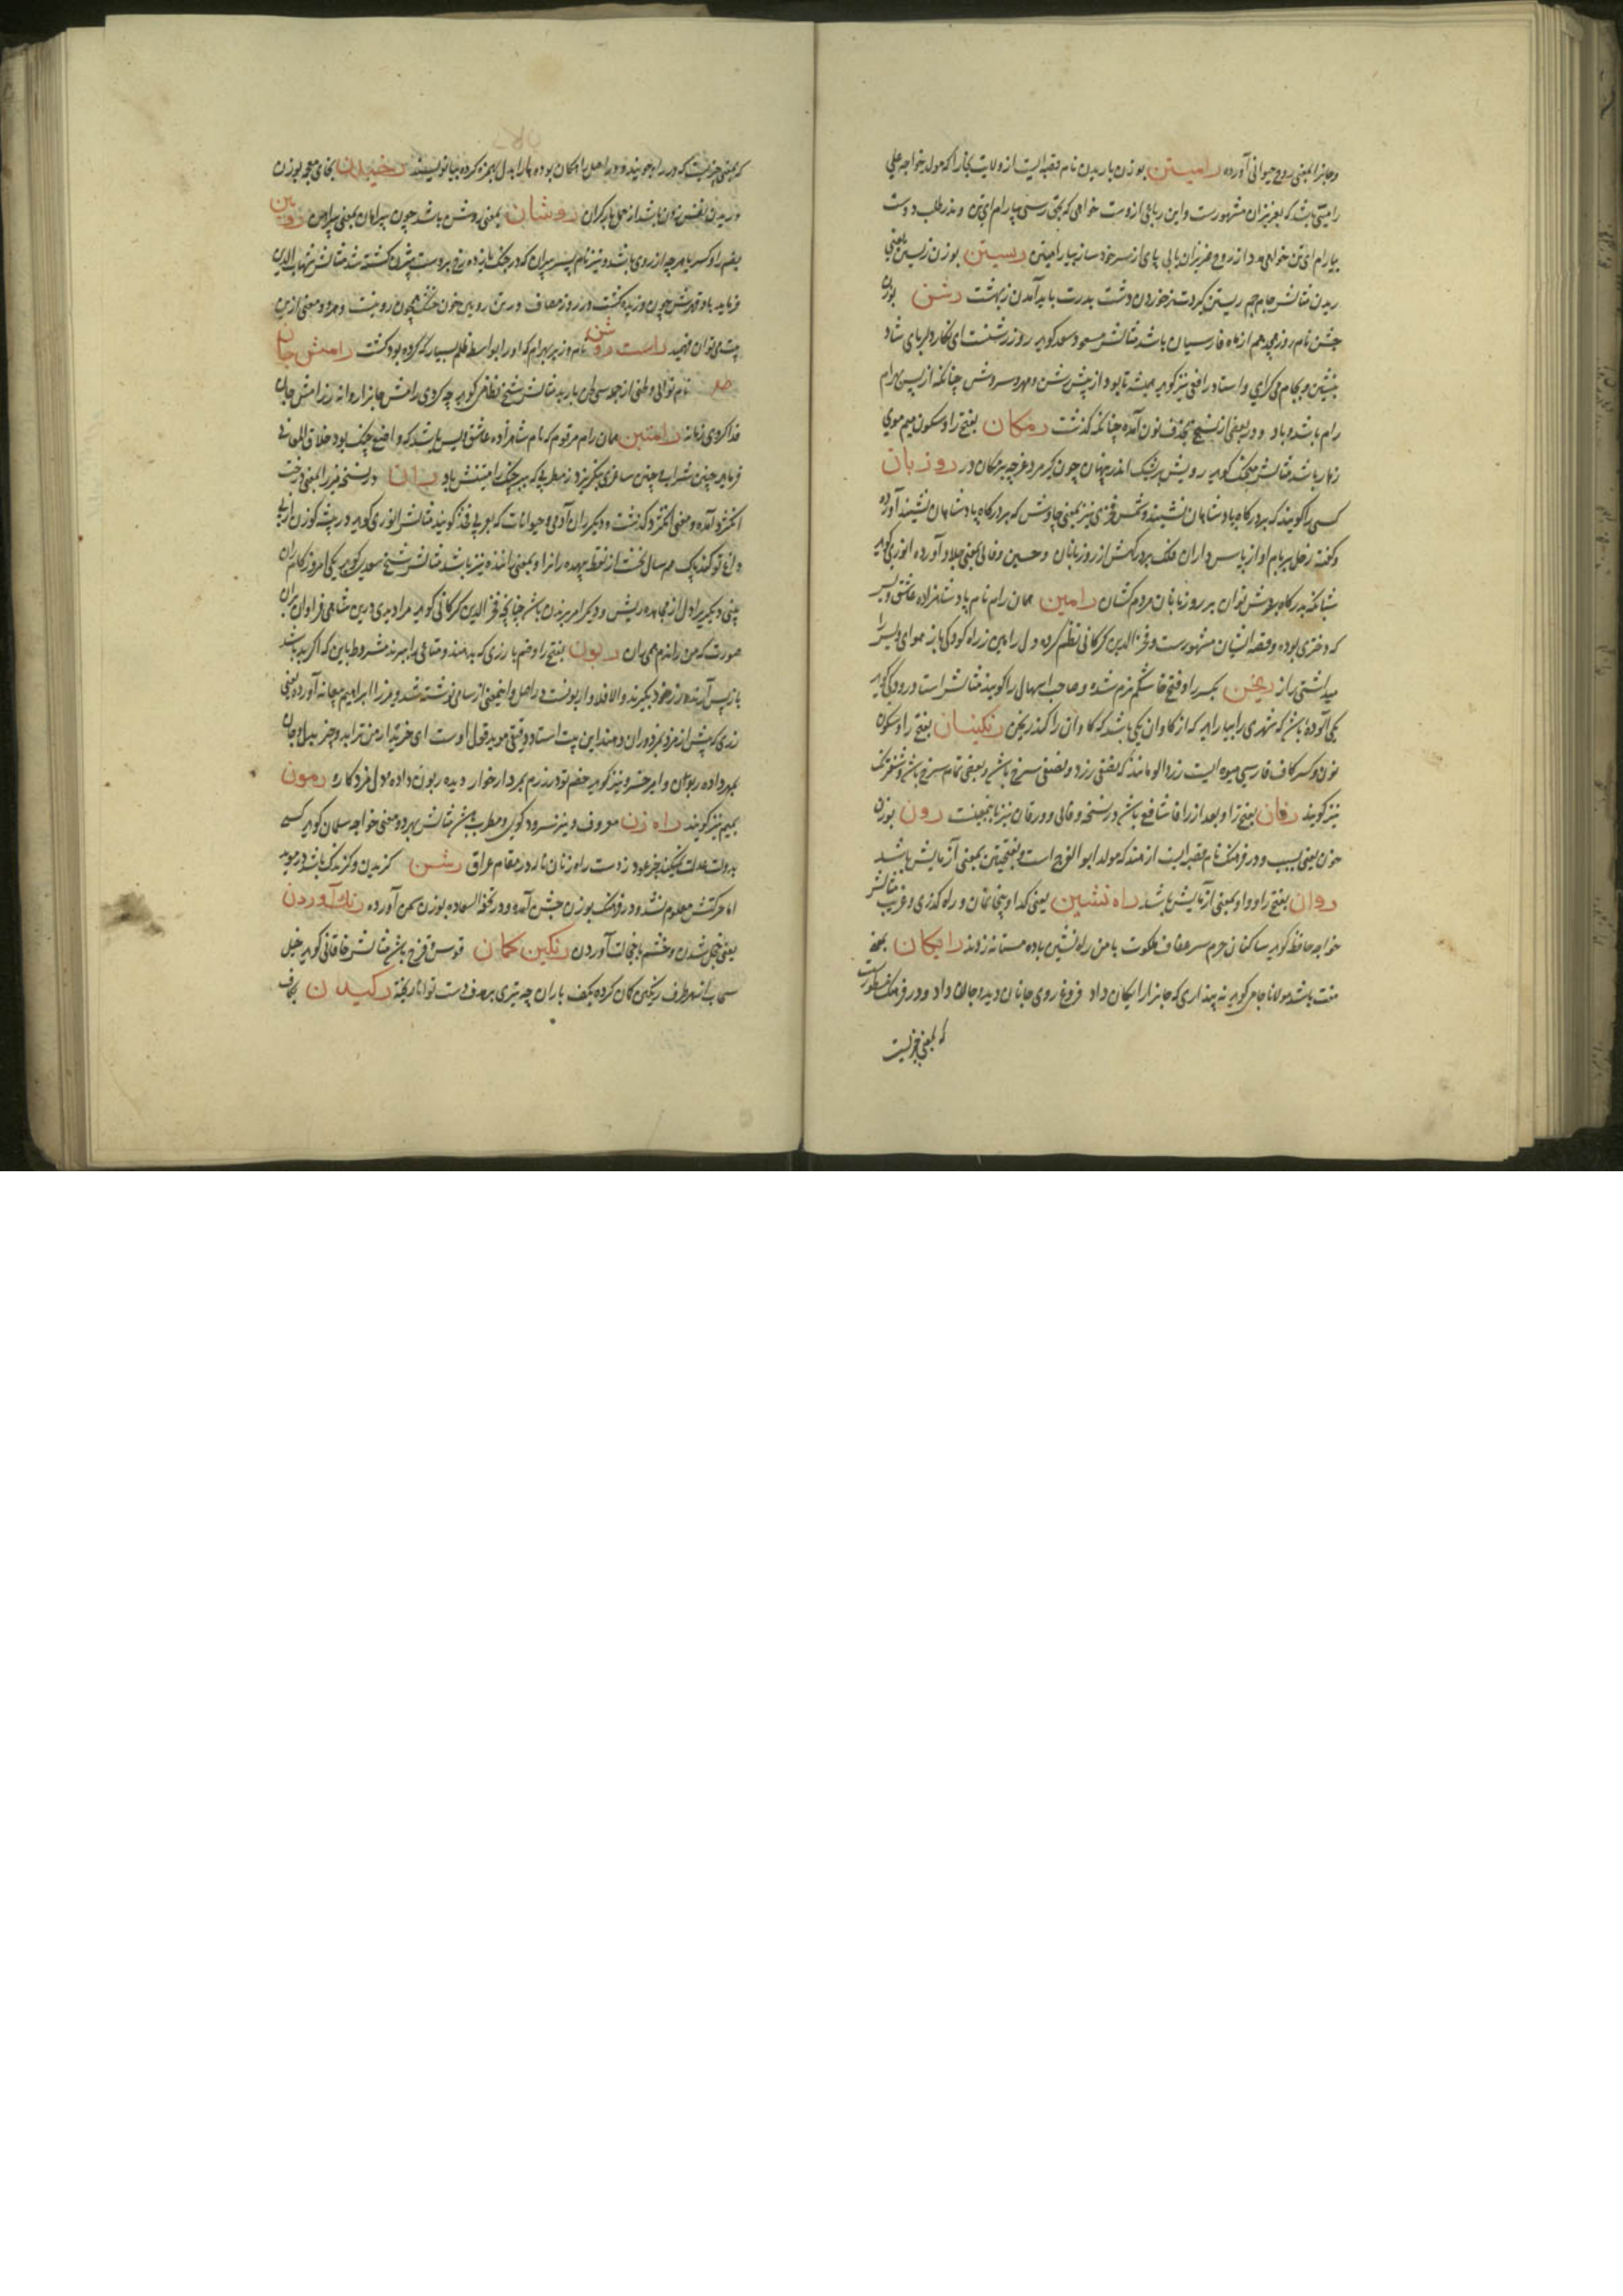 و جانرا بمعنی روح حیوانی آورده رامیتن بوزن باریدن نام قصبه ایست از ولایت بخارا که مولد خواجه علی
رامیتنی باشد که بعزیزان مشهورست و این رباعی ازوست خواهی که بحق رسی بیارام ای تن و اندر طلب دوست
بیارام ای تن خواهی مدد از روح عزیزان یابی پای از سر خود ساز بیا رامیتن رستن بوزن زیستن یعنی
ریدن مثالش جام جم ریستن گیردت ز خوردن دشت بدرت باید آمدن ز بهشت رشن بوزن
جشن نام روز هجدهم از ماه فارسیان باشد مثالش مسعود سعد گوید روز رشنست ای نگار دلربای شاد
بنشین و بجام می گرای و استاد رافعی نیز گوید همیشه تا بود از پیش رشن و مهر و سروش چنانکه از پس بهرام
رام باشد و باد و در بعضی از نسخ بحذف نون آمده چنانکه گذشت رمکان بفتح را و سکون میم موی
زهار باشد مثالش منجیک گوید رویش بریشک اندر پنهان چون کیر مرد غرچه برمکان در روزبان
کسی را گویند که بر درگاه پادشاهان نشیند و شمس فخری نیز بمعنی چاوش که بر درگاه پادشاهان نشیند آورده
و گفته زحل بر بام او از پاسداران فلک بر درگهش از روزبانان و حسین وفائی بمعنی جلاد آورده انوری گوید
شبانگه بدرگاه بردش نوان بر روزبانان مردم کشان رامین همان رام نام پادشاهزاده عاشق ویس
که دختری بوده و قصه ایشان مشهورست و فخر الدین گرگانی نظم کرده ول رامین ز راه کودکی باز هوای ویس را
میداشتی راز ریخن بکسر را و فتح خا شکم نرم شده و صاحب اسهال را گویند مثالش استاد رودکی گوید
یکی آلوده باشد که شهری را بیالاید که از گاوان یکی باشد که گاوان را کند ریخن رنگینان بفتح را و سکون
نون و کسر کاف فارسی میوه ایست زردآلو مانند که بعضی زرد و بعضی سرخ باشد و بعضی تمام سرخ باشد و شفرنگ
نیز گویند رفان بفتح را و بعد از را فا شافع باشد در نسخه وفائی و ورفان نیز باینمعنیست رون بوزن
خون یعنی بسبب و در فرهنگ نام قصبه ایست از هند که مولد ابو الفرج است و بفتحتین بمعنی آزمایش باشد
روان بفتح را و واو بمعنی آزمایش باشد راه نشین یعنی گدا و بیخانمان و راه گذری و غریب مثالش
خواجه حافظ گوید ساکنان حرم سر عفاف ملکوت با من راه نشین باده مستانه زدند رایگان بمعنی
مفت باشد مولانا جامی گوید نه پنداری که جانرا رایگان داد فروغ روی جانان دید و جان داد و در فرهنگ مسطورست
که بمعنی چیزیست
که بمعنی چیزیست که در راه جویند و در اصل راهگان بوده ها را بدل بهمزه کرده بیا نویسند رخیدن بخای معجمه بوزن
دریدن نفس زدن باشد از حمل بار گران روشان بمعنی روشن باشد چون پیرامان بمعنی پیرامن رویین
بضم را و کسر یا هر چه از روی باشد و نیز نام پسر پیران که در جنگ یازده رخ بر دست بیژن کشته شد مثالش شهاب الدین
فرماید باد قدرش چون وزیده گشت در روز مصاف در تن رویین خون خشک همچون روینست و هر دو معنی ازین
بیت میتوان فهمید راست روشن نام وزیر بهرام که او را بواسطه ظلم بسیار که کرده بود کشت رامش جان
نام نوائی و لحنی از جمله سی لحن باربد مثالش شیخ نظامی گوید چو کردی رامش جانرا روانه ز رامش جان
فدا کردی زمانه رامتین همان رام مرقوم که نام شاهزاده عاشق ویس باشد که واضع چنگ بود خلاق المعانی
فرماید چنین شراب و چنین ساغری بگیر و ز مطربی که بر چنگ رامتینش باد ران در نسخه میرزا بمعنی درخت
انگژد آمده و معنی انگژد گذشت و دیگر ران آدمی و حیوانات که بعربی فخذ گویند مثالش انوری گوید در بیشه گوزن از پی
داغ تو کند پاک هر سال نخست از نقطه بیهده رانرا و بمعنی راننده نیز باشد مثالش شیخ سعدی گوید یکی امروز کامران
بینی دیگریرا دل از مجاهده ریش و دیگر امر بر راندن باشد چنانچه فخر الدین گرگانی گوید مرا دیدی درین شاهی فراوان بران
صورت که من راندم همی ران ربون بفتح را و ضم با زری که بدهند و متاعی را ببرند مشروط باین که اگر بد باشد
باز پس آرند و زر خود بگیرند و الا فلا و اربونست در اصل و اینمعنی از سامی نوشته شد و میرزا ابراهیم بیعانه آورده یعنی
زری که پیش از مزد بمزدوران دهند این بیت استاد دقیقی موید قول اوست ای خریدار من ترا بدو چیز بدل و جان
بمهر داده ربون و امیر خسرو نیز گوید خصم تو در رزم بمردار خوار دیده ربون داده و دل مزد کار رمون
بمیم نیز گویند راه زن معروف و نیز سرود گوی و مطرب باشد مثالش بهر دو معنی خواجه سلمان گوید کسی
بدولت عدلت نمیکند جز عود ز دست راه زنان ناله در مقام عراق رشن گزیدن و گزندگی باشد در موید
اما حرکتش معلوم نشد و در فرهنگ بوزن جشن آمده و در تحفة السعاده بوزن سمن آورده رنگ آوردن
یعنی خجل شدن و خشم با خجالت آوردن رنگین کمان قوس قزح باشد مثالش خاقانی گوید خیل
سحاب از هر طرف رنگین کمان کرده بکف باران چو تیری بر هدف دست توانا ریخته رکیدن بکاف